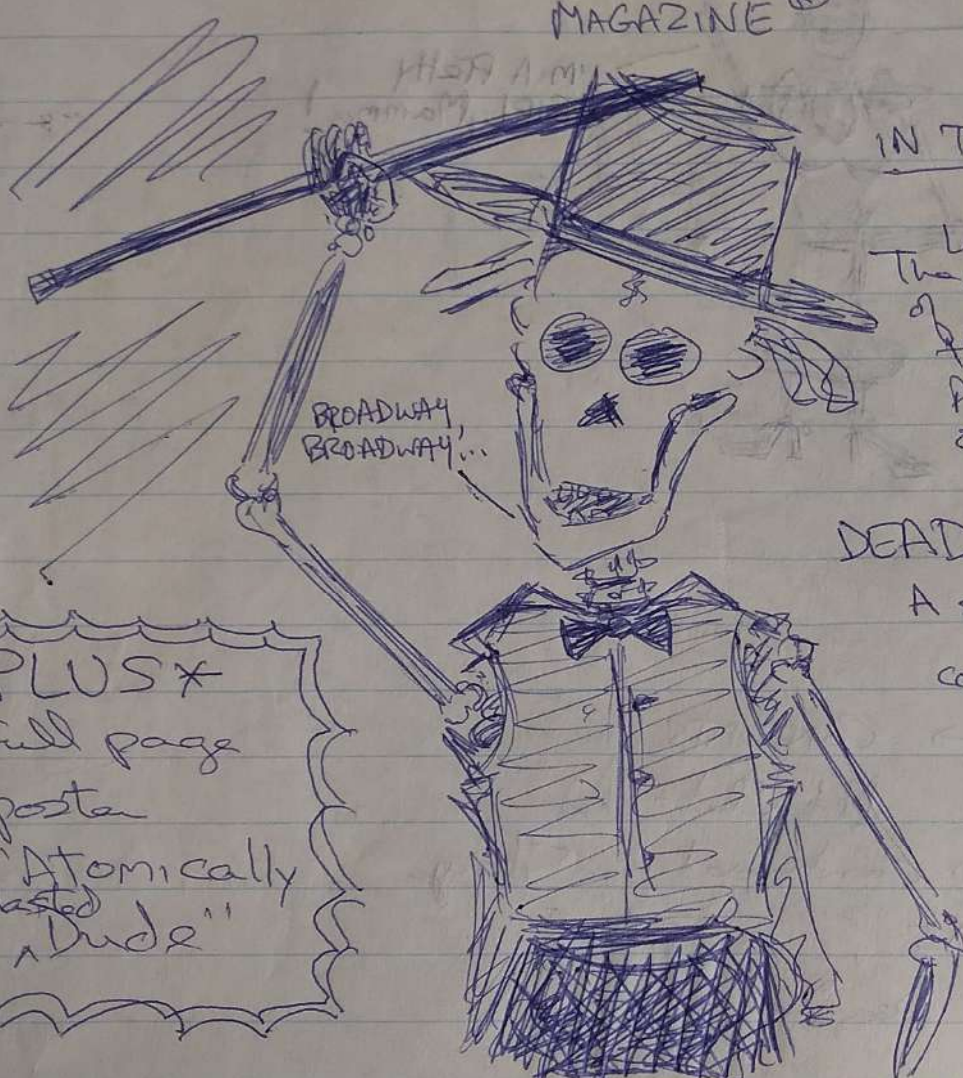 MAGAZINE
IN T
The
of
BROADWAY,
BROADWAY...
DEAD
A
co
PLUS*
full page
poster
"Atomically
asted
Dude"